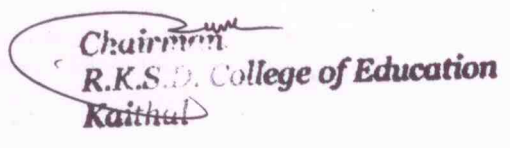 Chairman
R.K.S.D. College of Education
Kaithal